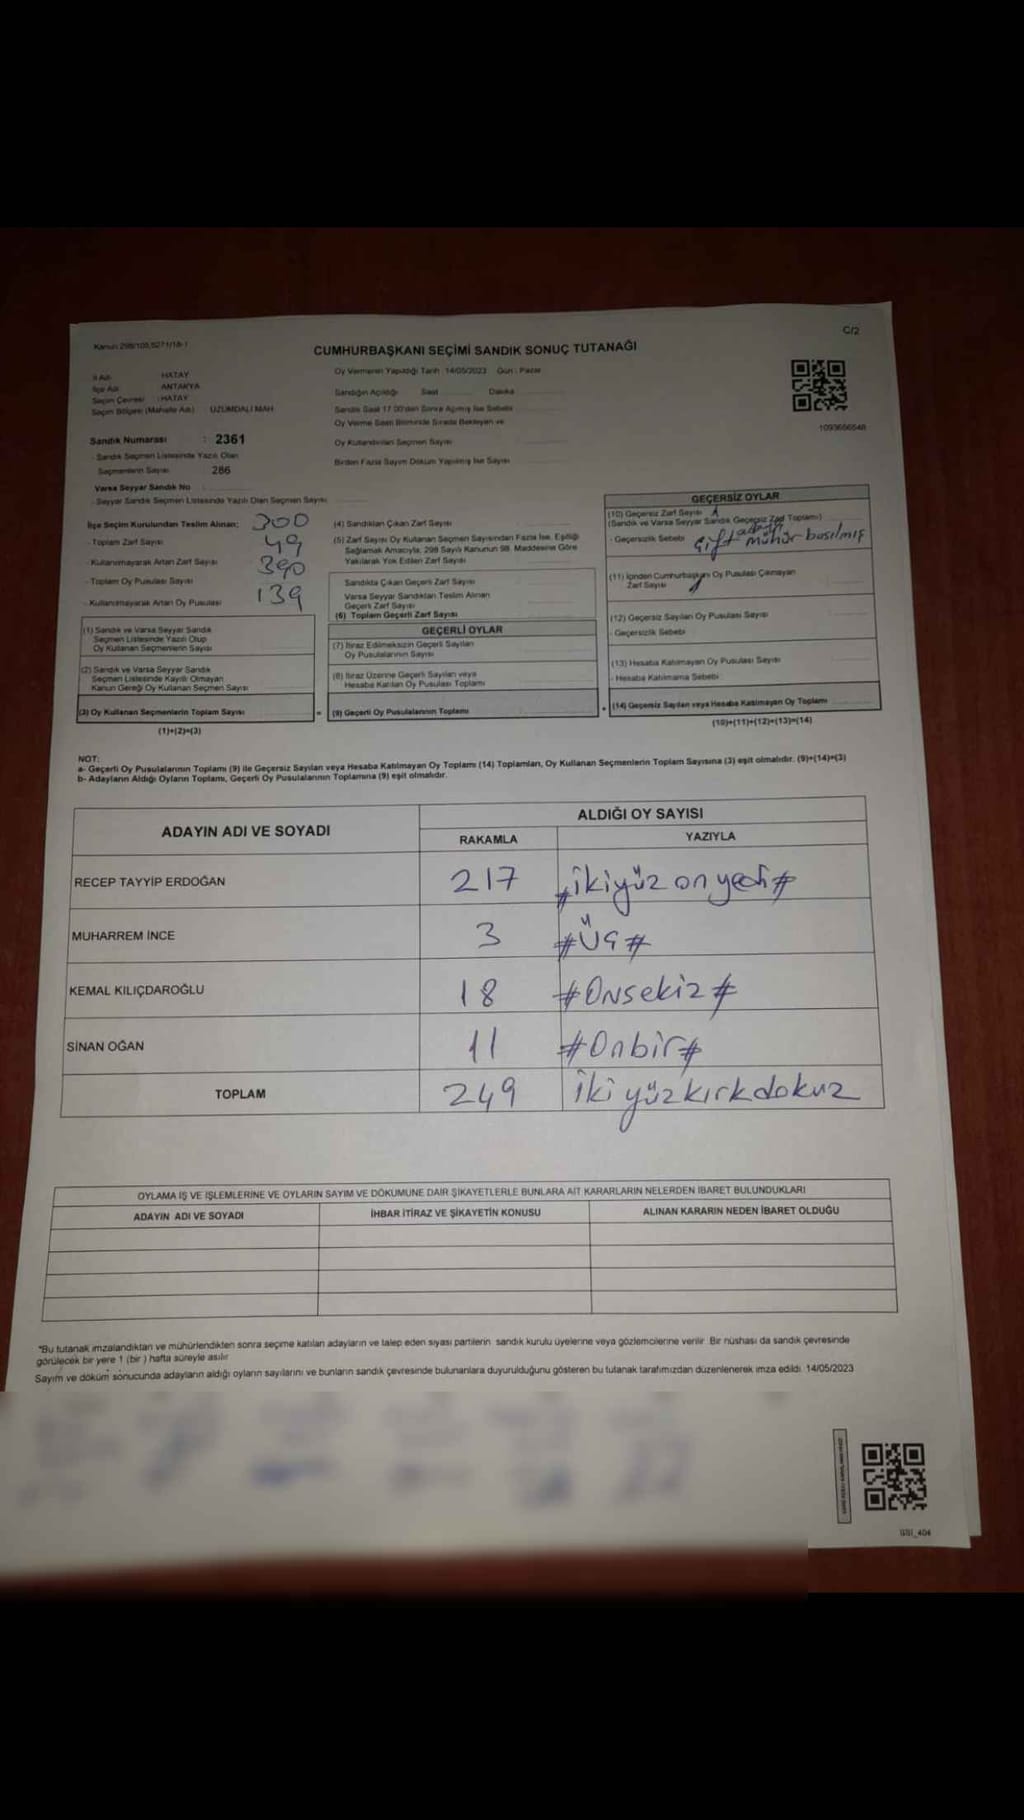 C/2
Kanun 298/105,5271/18-1
CUMHURBAŞKANI SEÇİMİ SANDIK SONUÇ TUTANAĞI
İl Adı : HATAY
İlçe Adı : ANTAKYA
Seçim Çevresi : HATAY
Seçim Bölgesi (Mahalle Adı) : UZUMDALI MAH.
Oy Vermenin Yapıldığı Tarih : 14/05/2023 Gün : Pazar
Sandığın Açıldığı Saat Dakika
Sandık Saat 17.00'den Sonra Açılmış İse Sebebi
Oy Verme Saati Bitiminde Sırada Bekleyen ve
Oy Kullandırılan Seçmen Sayısı
Birden Fazla Sayım Döküm Yapılmış İse Sayısı
1093666648
Sandık Numarası : 2361
- Sandık Seçmen Listesinde Yazılı Olan
Seçmenlerin Sayısı 286
Varsa Seyyar Sandık No
- Seyyar Sandık Seçmen Listesinde Yazılı Olan Seçmen Sayısı
İlçe Seçim Kurulundan Teslim Alınan; 300
- Toplam Zarf Sayısı 49
- Kullanılmayarak Artan Zarf Sayısı 390
- Toplam Oy Pusulası Sayısı 139
- Kullanılmayarak Artan Oy Pusulası
(1) Sandık ve Varsa Seyyar Sandık
Seçmen Listesinde Yazılı Olup
Oy Kullanan Seçmenlerin Sayısı
(2) Sandık ve Varsa Seyyar Sandık
Seçmen Listesinde Kayıtlı Olmayan
Kanun Gereği Oy Kullanan Seçmen Sayısı
(3) Oy Kullanan Seçmenlerin Toplam Sayısı
(1)+(2)=(3)
(4) Sandıktan Çıkan Zarf Sayısı
(5) Zarf Sayısı Oy Kullanan Seçmen Sayısından Fazla İse, Eşitliği
Sağlamak Amacıyla, 298 Sayılı Kanunun 98. Maddesine Göre
Yakılarak Yok Edilen Zarf Sayısı
Sandıkta Çıkan Geçerli Zarf Sayısı
Varsa Seyyar Sandıktan Teslim Alınan
Geçerli Zarf Sayısı
(6) Toplam Geçerli Zarf Sayısı
GEÇERLİ OYLAR
(7) İtiraz Edilmeksizin Geçerli Sayılan
Oy Pusulalarının Sayısı
(8) İtiraz Üzerine Geçerli Sayılan veya
Hesaba Katılan Oy Pusulası Toplamı
= (9) Geçerli Oy Pusulalarının Toplamı
GEÇERSİZ OYLAR
(10) Geçersiz Zarf Sayısı 1
(Sandık ve Varsa Seyyar Sandık Geçersiz Zarf Toplamı)
- Geçersizlik Sebebi çift adaya mühür basılmış
(11) İçinden Cumhurbaşkanı Oy Pusulası Çıkmayan
Zarf Sayısı
(12) Geçersiz Sayılan Oy Pusulası Sayısı
- Geçersizlik Sebebi
(13) Hesaba Katılmayan Oy Pusulası Sayısı
- Hesaba Katılmama Sebebi
+ (14) Geçersiz Sayılan veya Hesaba Katılmayan Oy Toplamı
(10)+(11)+(12)+(13)=(14)
NOT:
a- Geçerli Oy Pusulalarının Toplamı (9) ile Geçersiz Sayılan veya Hesaba Katılmayan Oy Toplamı (14) Toplamları, Oy Kullanan Seçmenlerin Toplam Sayısına (3) eşit olmalıdır. (9)+(14)=(3)
b- Adayların Aldığı Oyların Toplamı, Geçerli Oy Pusulalarının Toplamına (9) eşit olmalıdır.
ADAYIN ADI VE SOYADI ALDIĞI OY SAYISI
RAKAMLA YAZIYLA
RECEP TAYYİP ERDOĞAN 217 #ikiyüz on yedi#
MUHARREM İNCE 3 #Üç#
KEMAL KILIÇDAROĞLU 18 #Onsekiz#
SİNAN OĞAN 11 #Onbir#
TOPLAM 249 İki yüz kırk dokuz
OYLAMA İŞ VE İŞLEMLERİNE VE OYLARIN SAYIM VE DÖKÜMÜNE DAİR ŞİKAYETLERLE BUNLARA AİT KARARLARIN NELERDEN İBARET BULUNDUKLARI
ADAYIN ADI VE SOYADI İHBAR İTİRAZ VE ŞİKAYETİN KONUSU ALINAN KARARIN NEDEN İBARET OLDUĞU
*Bu tutanak imzalandıktan ve mühürlendikten sonra seçime katılan adayların ve talep eden siyasi partilerin sandık kurulu üyelerine veya gözlemcilerine verilir. Bir nüshası da sandık çevresinde
görülecek bir yere 1 (bir ) hafta süreyle asılır.
Sayım ve döküm sonucunda adayların aldığı oyların sayılarını ve bunların sandık çevresinde bulunanlara duyurulduğunu gösteren bu tutanak tarafımızdan düzenlenerek imza edildi. 14/05/2023
GSI_404